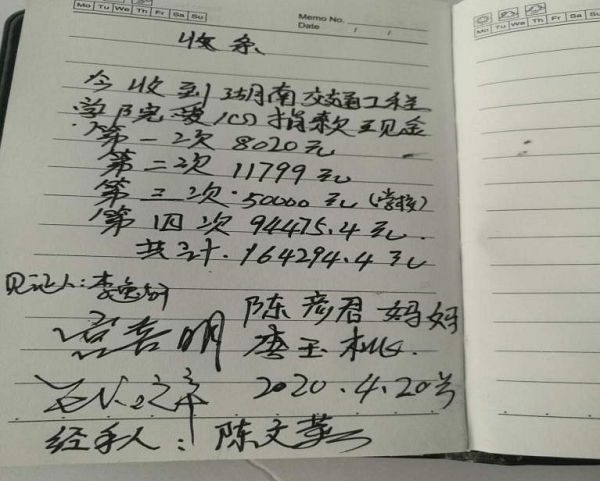 Mo Tu We Th Fr Sa Su
Memo No.
Date / /
Mo Tu We Th Fr Sa Su
收条
今收到湖南交通工程
学院爱心捐款现金
第一次 8020元
第二次 11799元
第三次·50000元(学校)
第四次 94475.4元.
共计·164294.4元
见证人:李
陈彦君妈妈
明 李玉
2020.4.20号
经手人:陈文英